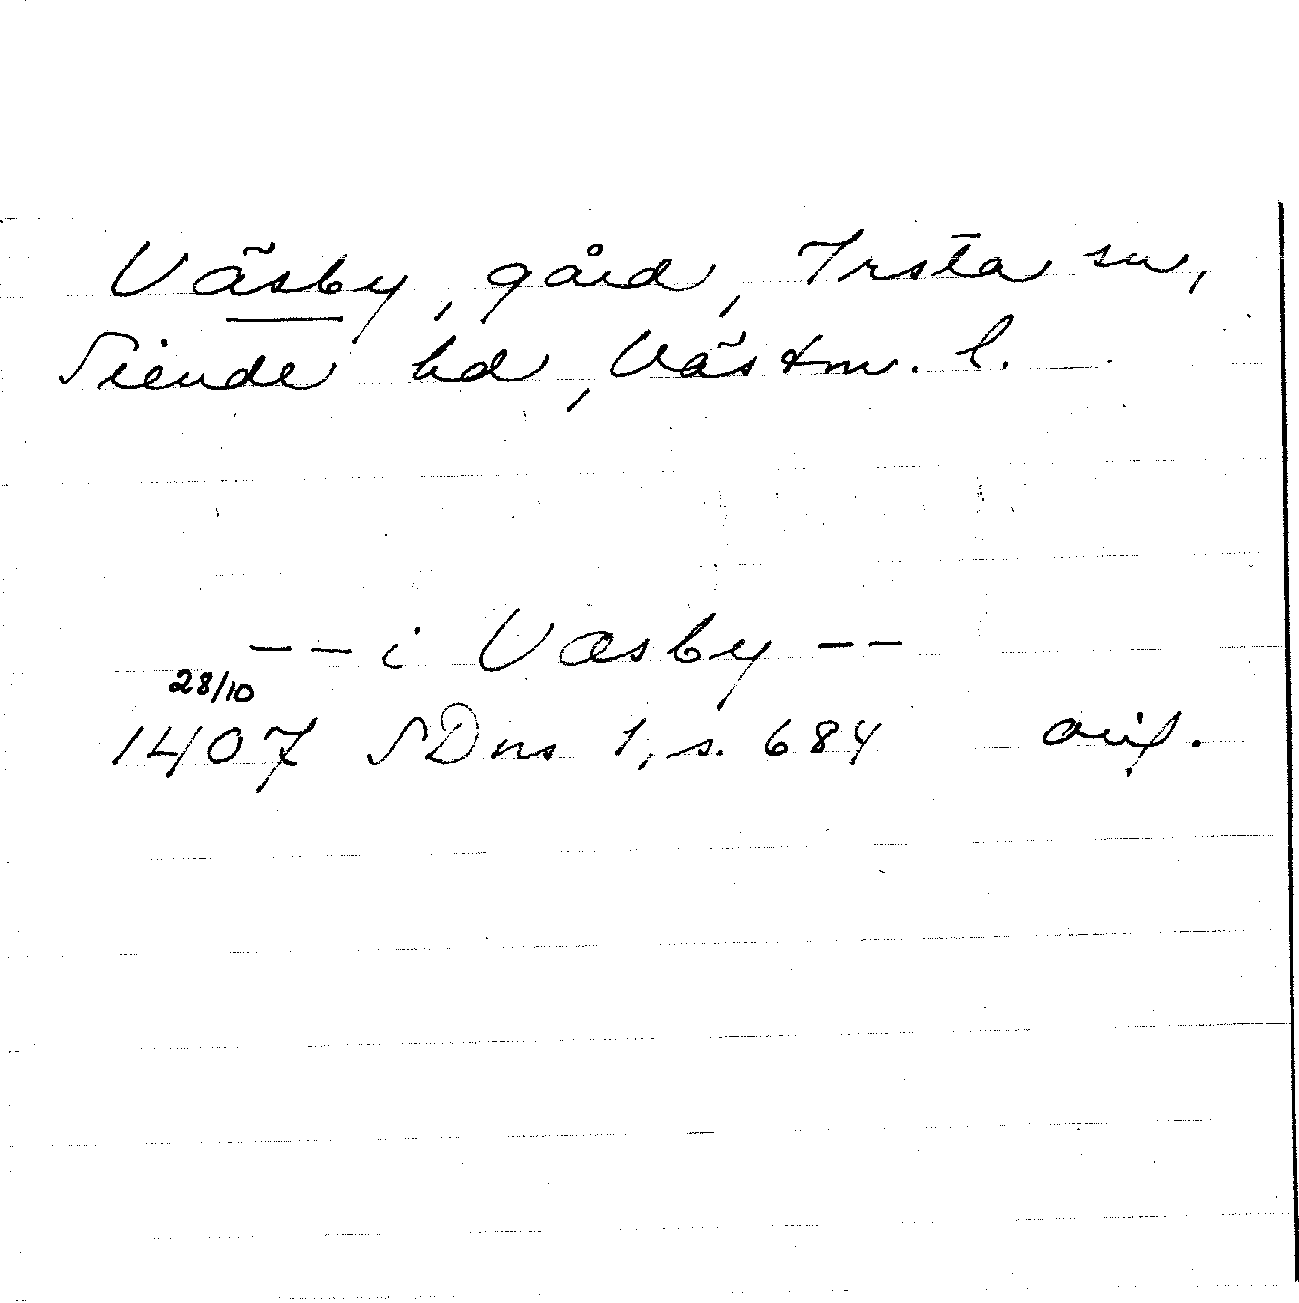 Väsby, gård, Irsta sn,
Siende hd, Västm. l.
-- i Væsby --
28/10
1407 SDns 1, s. 684 orig.